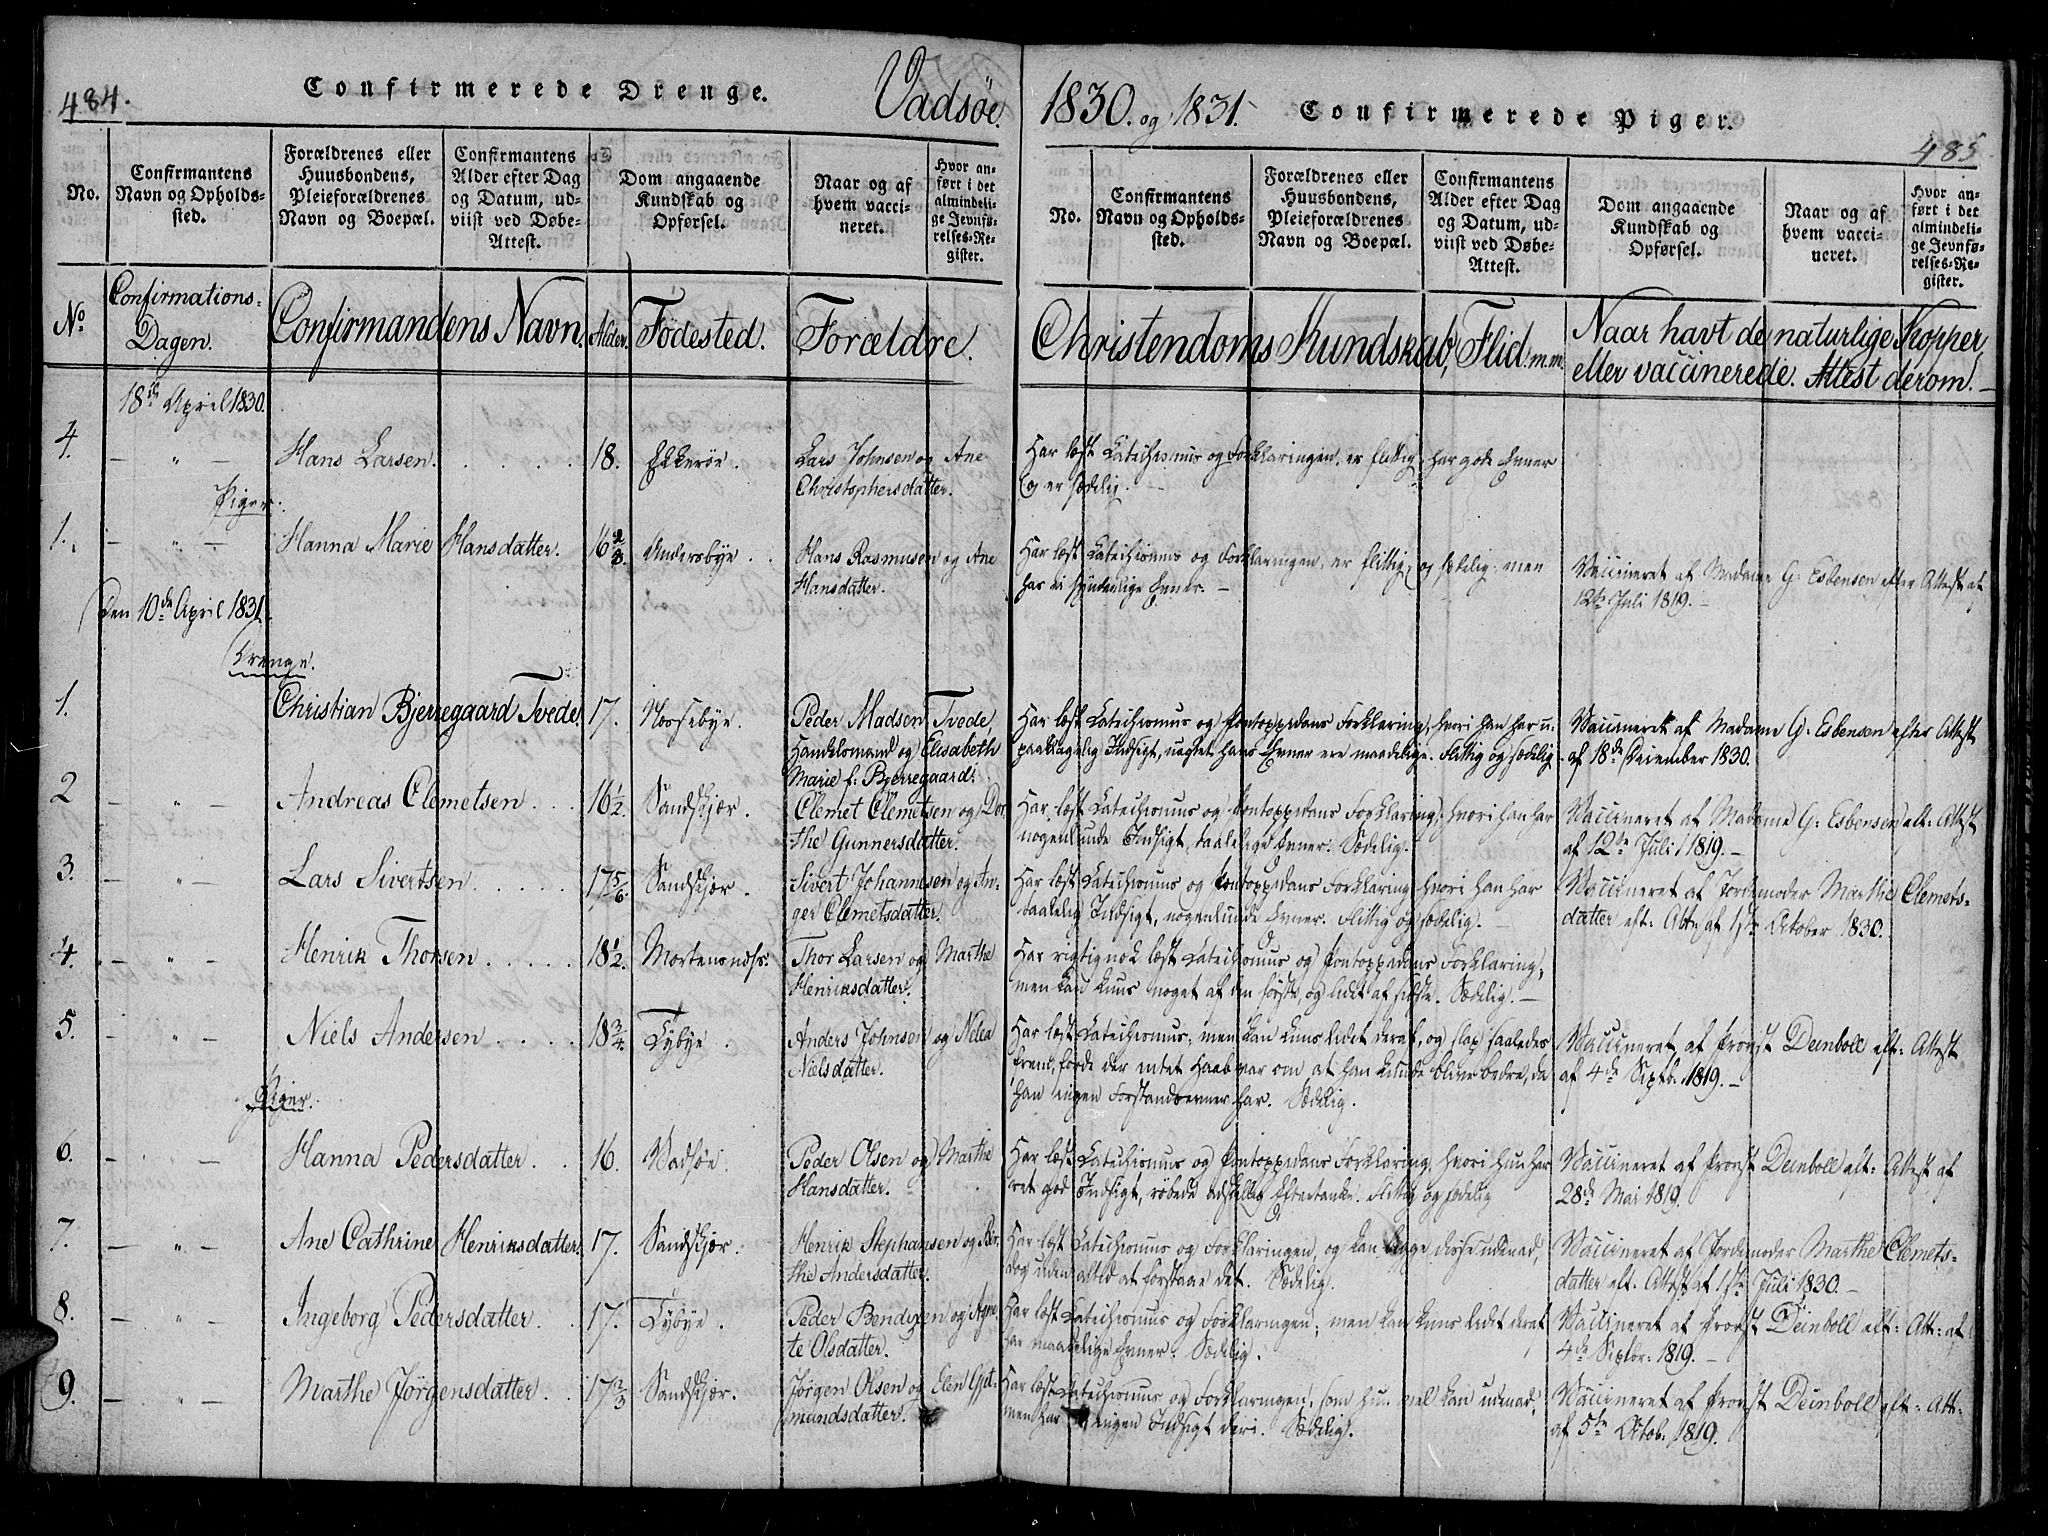 484.
Confirmerede Drenge.
Vadsøe.
No.
Confirmantens Navn og Opholdssted.
Forældrenes eller Huusbondens, Pleieforældrenes Navn og Boepæl.
Confirmantens Alder efter Dag og Datum, udviist ved Døbe-Attest.
Dom angaaende Kundskab og Opførsel.
Naar og af hvem vaccineret.
Hvor anført i det almindelige Jevnførelses-Register.
No
Confirmations-Dagen.
Confirmandens Navn.
Alder.
Födested.
Forældre.
18de April 1830.
4. — " — Hans Larsen. 18. Ekkerøe. Lars Johnsen og Ane
Christophersdatter.
Piger.
1. — " — Hanna Marie Hansdatter. 16 2/3. Andersbye. Hans Rasmusen og Ane
Hansdatter.
Den 10de April 1831.
Drenge.
1. Christian Bjerregaard Tvede. 17. Næssebye. Peder Madsen Tvede,
Handelsmand og Elisabeth
Marie f: Bjerregaard.
2 — " — Andreas Clemetsen. 16 1/2. Sandskjær. Clemet Clemetsen og Dor-
the Gunnersdatter.
3. — " — Lars Sivertsen 17 5/6. Sandskjær. Sivert Johannesen og An-
ger Clemetsdatter.
4. — " — Henrik Thorsen 18 1/2. Mortensnæs. Thor Larsen og Marthe
Henriksdatter.
5. — " — Niels Andersen 18 3/4. Tybye. Anders Johnsen og Nelea
Nielsdatter.
Piger.
6. — " — Hanna Pedersdatter. 16. Vadsøe. Peder Olsen og Marthe
Hansdatter.
7. — " — Ane Cathrine Henriksdatter. 17. Sandskjær. Henrik Stephansen og Bor-
the Andersdatter.
8. — " — Ingeborg Pedersdatter. 17. Tybye. Peder Bendixen og Agne-
te Olsdatter.
9. — " — Marthe Jörgensdatter. 17 2/3 Sandskjær. Jörgen Olsen og Elen Gut-
mundsdatter.
1830. og 1831.
Confirmerede Piger.
485
No.
Confirmantens Navn og Opholdssted.
Forældrenes eller Huusbondens, Pleieforældrenes Navn og Boepæl.
Confirmantens Alder efter Dag og Datum, udviist ved Døbe-Attest.
Dom angaaende Kundskab og Opførsel.
Naar og af hvem vaccineret.
Hvor anført i det almindelige Jevnførelses-Register.
Christendoms Kundskab, Flid m.m.
Naar havt de naturlige Kopper
eller vaccinerede. Attest derom. —
Har læst Catechismus og Forklaringen, er flittig, har gode Evner
og er sædelig. —
Har læst Catechismus og Forklaringen, er flittig og sædelig, men
har ei synderlige Evner. —
Vaccineret af Madame G: Esbensen efter Attest af
12te Juli 1819. —
Har læst Catechismus og Pontoppidans Forklaring, hvori han har u-
paaklagelig Indsigt, uagtet hans Evner ere maadelige. Flittig og sædelig.
Vaccineret af Madame G: Esbensen efter Attest
af 18de December 1830.
Har læst Catechismus og Pontoppidans Forklaring, hvori han har
nogenlunde Indsigt, taalelige Evner. Sædelig.
Vaccineret af Madame G: Esbensen eft: Attest
af 12te Juli 1819. —
Har læst Catechismus og Pontoppidans Forklaring hvori han har
taalelig Indsigt, nogenlunde Evner. Flittig og sædelig. —
Vaccineret af Jordemoder Marthe Clemets-
datter eft: Att: af 1ste October 1830.
Har rigtignok læst Catechismus og Pontoppidans Forklaring,
men kan kuns noget af den første, og lidet af sidste. Sædelig. —
Har læst Catechismus, men kan kuns lidet deraf, og slap saaledes
frem, fordi der intet Haab var om at han kunde blive bedre, da
han ingen Forstandsevner har. Sædelig.
Vaccineret af Provst Deinboll eft: Attest
af 4de Septb: 1819. —
Har læst Catechismus og Pontoppidans Forklaring hvori hun har
ret god Indsigt, röbede adskillig Eftertanke. Flittig og sædelig
Vaccineret af Provst Deinboll eft: Attest af
28de Mai 1819.
Har læst Catechismus og Forklaringen, og kan begge disse udenad,
dog uden altid at forstaae det. Sædelig.
Vaccineret af Jordemoder Marthe Clemets-
datter eft: Attest af 1ste Juli 1830. —
Har læst Catechismus og Forklaringen; men kan kuns lidet deraf,
har maadelige Evner. Sædelig.
Vaccineret af Provst Deinboll eft: Att: af
4de Septbr: 1819. —
Har læst Catechismus og Forklaringen, som hun vel kan udenad,
men har ingen Indsigt deri. Sædelig.
Vaccineret af Provst Deinboll eft: Att:
af 5te Octob: 1819.